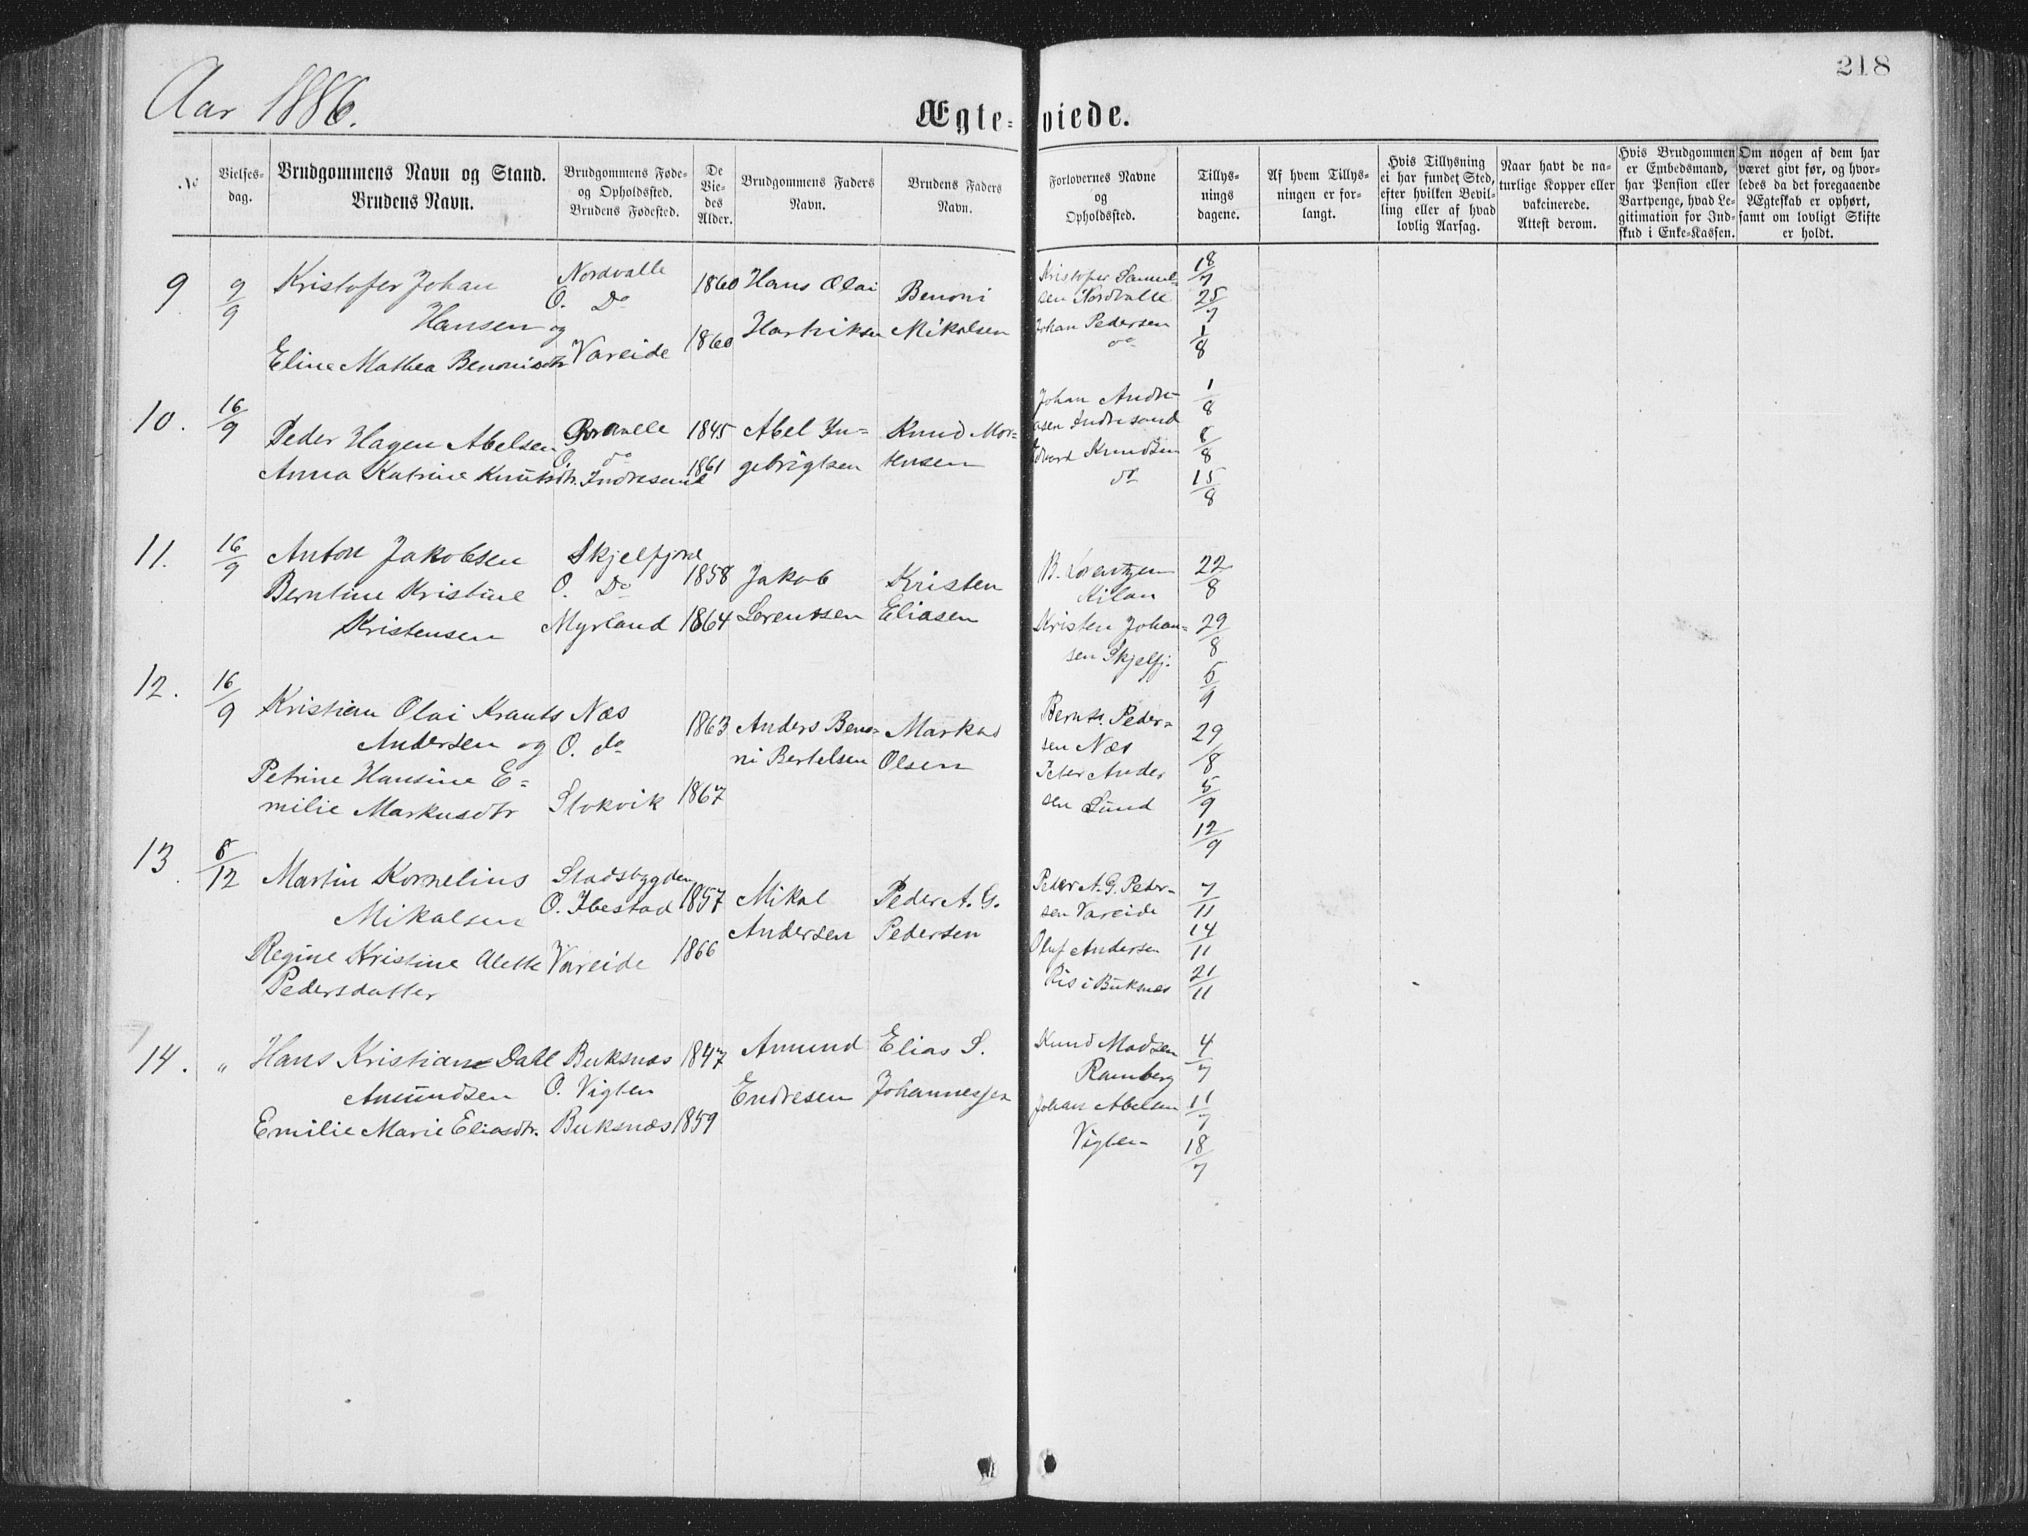 218
Aar 1886.
Ægte-viede.
No
Vielses-dag.
Brudgommens Navn og Stand.
Brudens Navn.
Brudgommens Føde- og Opholdssted.
Brudens Fødested.
De Vie-des Alder.
Brudgommens Faders Navn.
Brudens Faders Navn.
Forlovernes Navne og Opholdssted.
Tillys-nings dagene.
Af hvem Tillys-ningen er for-langt.
Hvis Tillysning ei har fundet Sted, efter hvilken Bevil-ling eller af hvad lovlig Aarsag.
Naar havt de na-turlige Kopper eller vakcinerede. Attest derom.
Hvis Brudgommen er Embedsmand, har Pension eller Vartpenge, hvad Le-gitimation for Ind-skud i Enke-Kassen.
Om nogen af dem har været givt før, og hvor-ledes da det foregaaende Ægteskab er ophørt, samt om lovligt Skifte er holdt.
9 9/9 Kristofer Johan Hansen og
Eline Mathea Benonisdtr
Nordvalle
O. Do
Vareide
1860
1860
Hans Olai
Hartviksen
Benoni
Mikalsen
Kristofer Samuel-
sen Nordvalle
Johan Pedersen
do
18/7
25/7
1/8
10. 16/9 Peder Hagen Abelsen
Anna Katrine Knutsdtr.
O. do
Indresand
1845
1861
Abel In-
gebrigtsen
Knud Mor-
tensen
Johan Andre-
asen Indresand
Edvard Knudsen
do
1/8
8/8
15/8
11. 16/9 Anton Jakobsen
Berntine Kristine
Kristensen
Skjelfjord
O. Do
Myrland
1858
1864
Jakob
Lorentsen
Kristen
Eliasen
B. Lorentzen
Kilan
Kristen Johan-
sen Skjelfj.
22/8
29/8
5/9
12. 16/9 Kristian Olai Krants
Andersen og
Petrine Hansine E-
milie Markusdtr
Næs
O. do
Stokvik
1863
1867
Anders Beno-
ni Bertelsen
Markus
Olsen
Bernt Peder-
sen Næs
Peter Ander
sen Sund
29/8
5/9
12/9
13. 8/12 Martin Kornelius
Mikalsen
Regine Kristine Alette
Pedersdatter
Stadsbygden
O. Ibestad
Vareide
1857
1866
Mikal
Andersen
Peder A. G.
Pedersen
Peder A. G. Peder-
sen Vareide
Oluf Andersen
Ris i Buksnæs
7/11
14/11
21/11
14. „ Hans Kristian Dahl
Amundsen
Emilie Marie Eliasdtr.
Buksnæs
O. Vigten
Buksnæs
1847
1859
Amund
Endresen
Elias S.
Johannessen
Knud Madsen
Ramberg
Johan Abelsen
Vigten
4/7
11/7
18/7